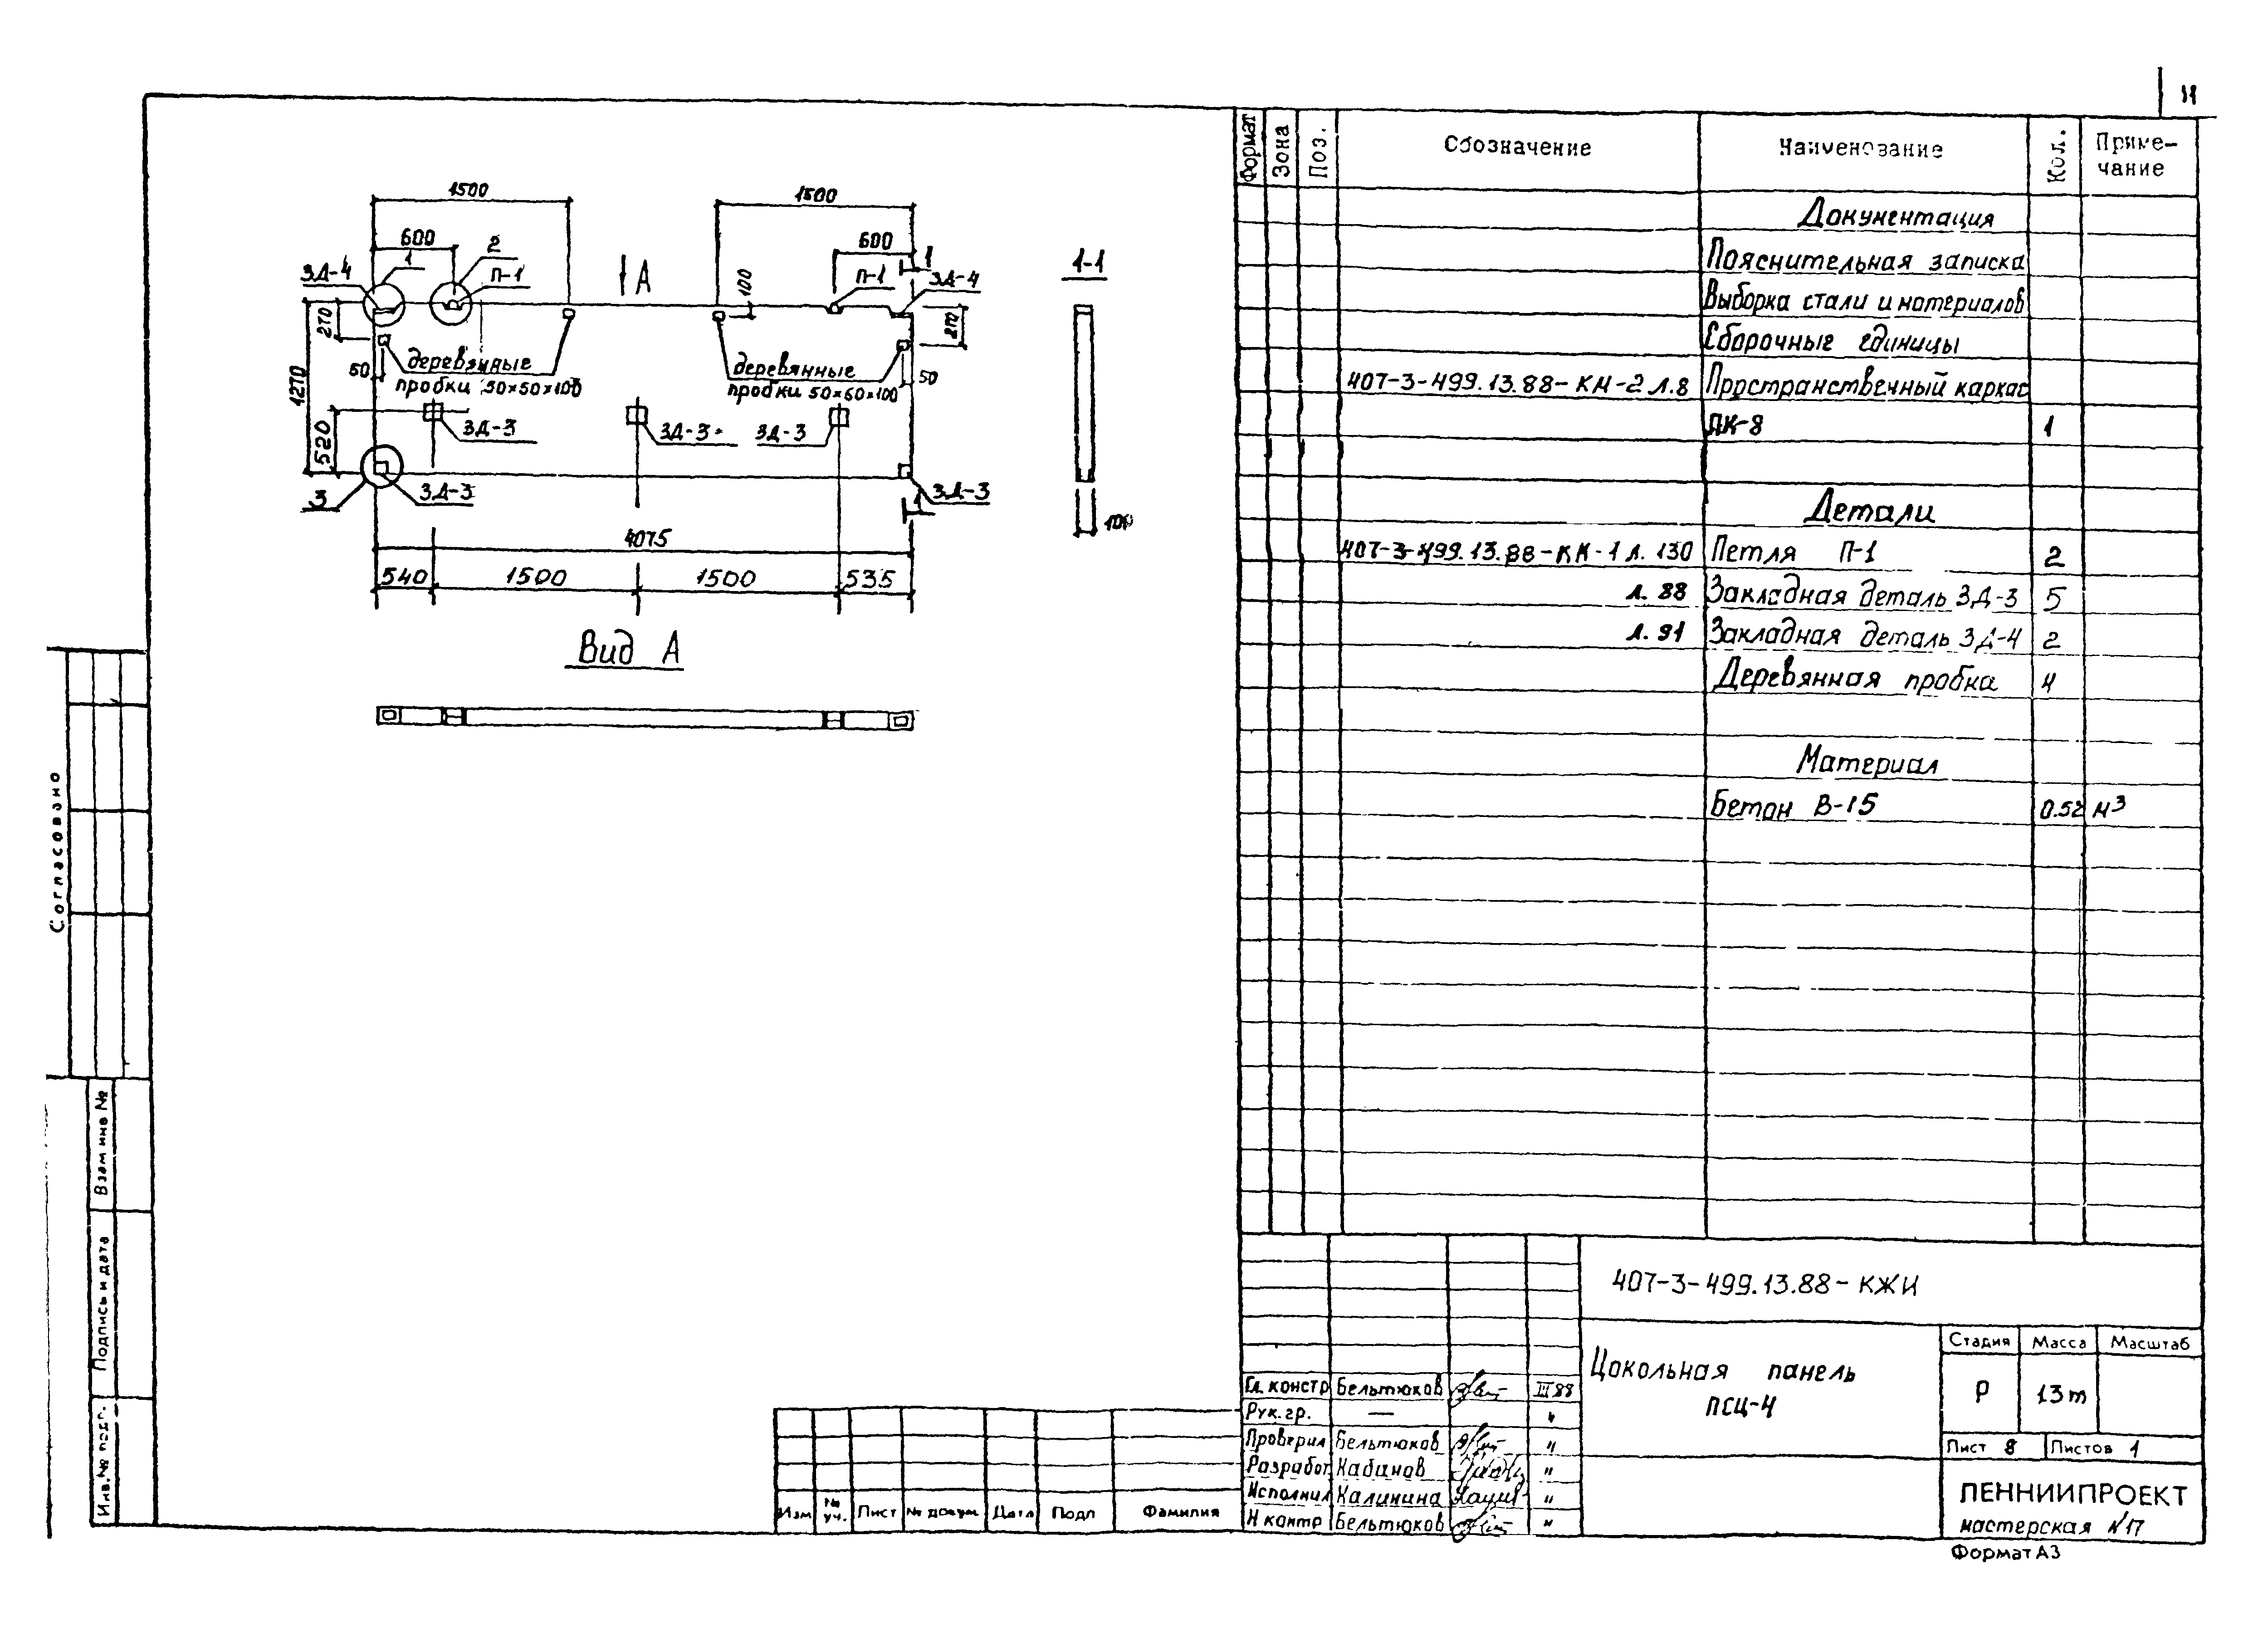 11
1500
1500
600
2
600
1
1
1-1
ЗД-4
П-1
А
100
П-1
ЗД-4
270
270
деревянные
пробки 50×50×100
50
деревянные
пробки 50×60×100
50
1270
520
ЗД-3
ЗД-3
ЗД-3
3
ЗД-3
ЗД-3
1
100
4075
540
1500
1500
535
Вид А
Формат
Зона
Поз.
Обозначение
Наименование
Кол.
Приме-
чание
Документация
Пояснительная записка
Выборка стали и материалов
Сборочные единицы
407-3-499.13.88-КИ-2 л.8 Пространственный каркас
ПК-8 1
Детали
407-3-499.13.88-КИ-1 л. 130 Петля П-1 2
л. 88 Закладная деталь ЗД-3 5
л. 91 Закладная деталь ЗД-4 2
Деревянная пробка 4
Материал
Бетон В-15 0.52 м³
Согласовано
Взам инв №
Подпись и дата
Инв. № подл.
407-3-499.13.88-КЖИ
Цокольная панель
ПСЦ-4
Стадия Масса Масштаб
Р 13т
Лист 8 Листов 1
ЛЕННИИПРОЕКТ
мастерская №17
Гл. констр Бельтюков III 88
Рук. гр. — "
Проверил Бельтюков "
Разработ Кабанов "
Исполнил Калинина "
Н контр Бельтюков "
Изм № уч. Лист № докум Дата Подп Фамилия
Формат А3